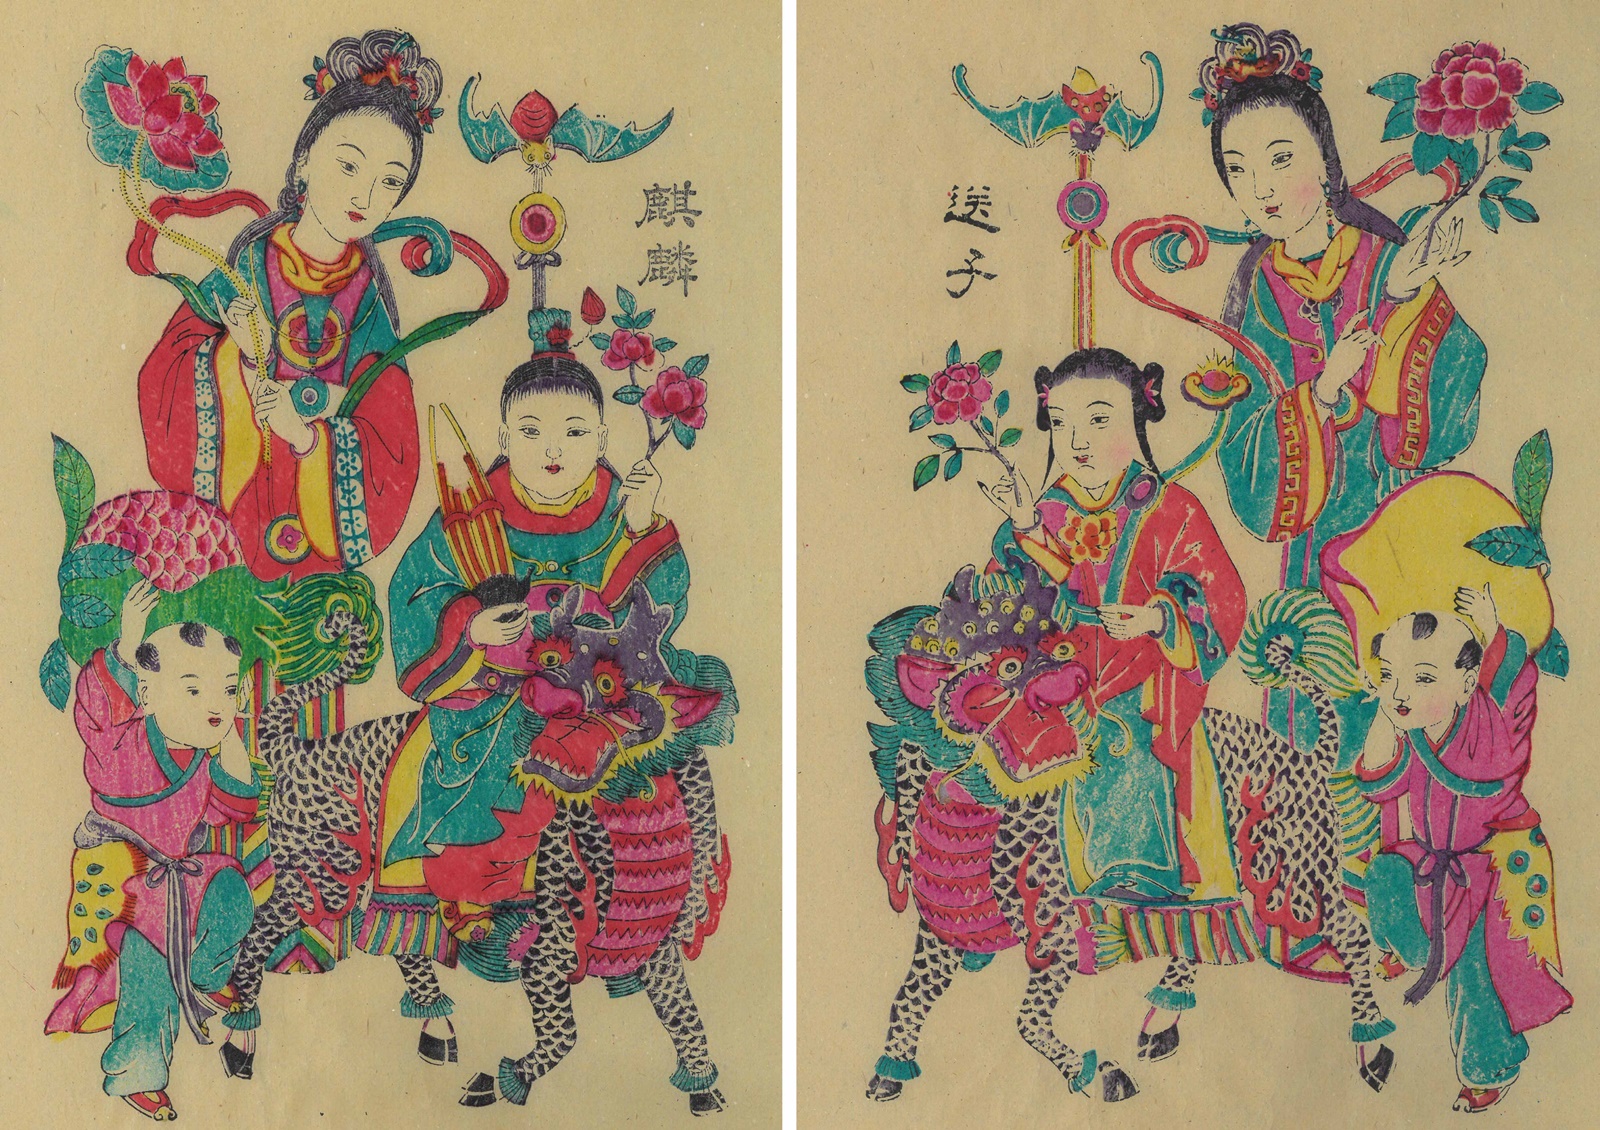 麒麟
送子